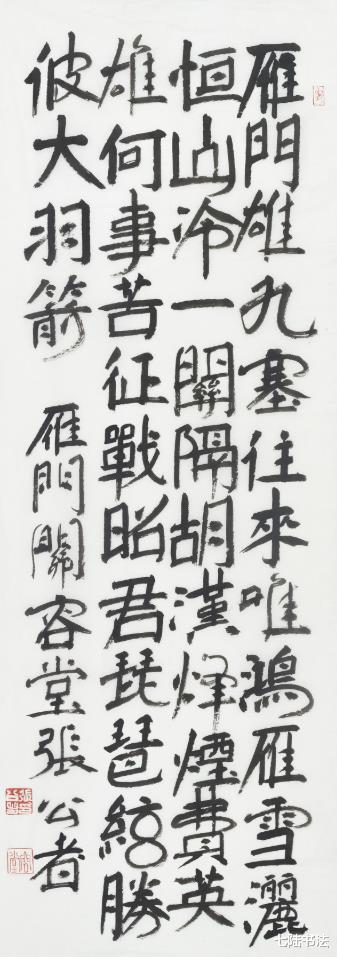 雁門雄九塞往來唯鴻雁雪灑
恒山冷一關隔胡漢烽煙費英
雄何事苦征戰昭君琵琶絃勝
彼大羽箭 雁門關容堂張公者
七陆书法